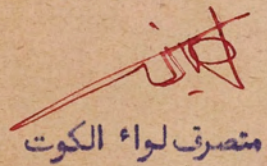 متصرف لواء الكوت